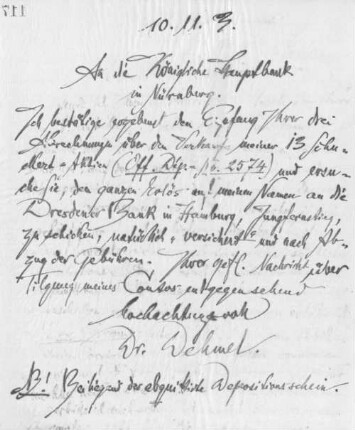 10. 11. 3.
An die Königliche Hauptbank
in Nürnberg.
Ich bestätige ergebenst den Empfang Ihrer drei
Abrechnungen über den Verkauf meiner 13 Schu-
ckert-Aktien (Eff. Dep. 2574) und ersu-
che Sie, den ganzen Erlös auf meinen Namen an die
Dresdener Bank in Hamburg, Jungfernstieg,
zu schicken, natürlich versichert und nach Ab-
zug der Gebühren. Ihrer gefl. Nachricht über
Tilgung meines Contos entgegensehend
hochachtungsvoll
Dr. Dehmel.
NB! Beiliegend der abquittierte Depositionsschein.